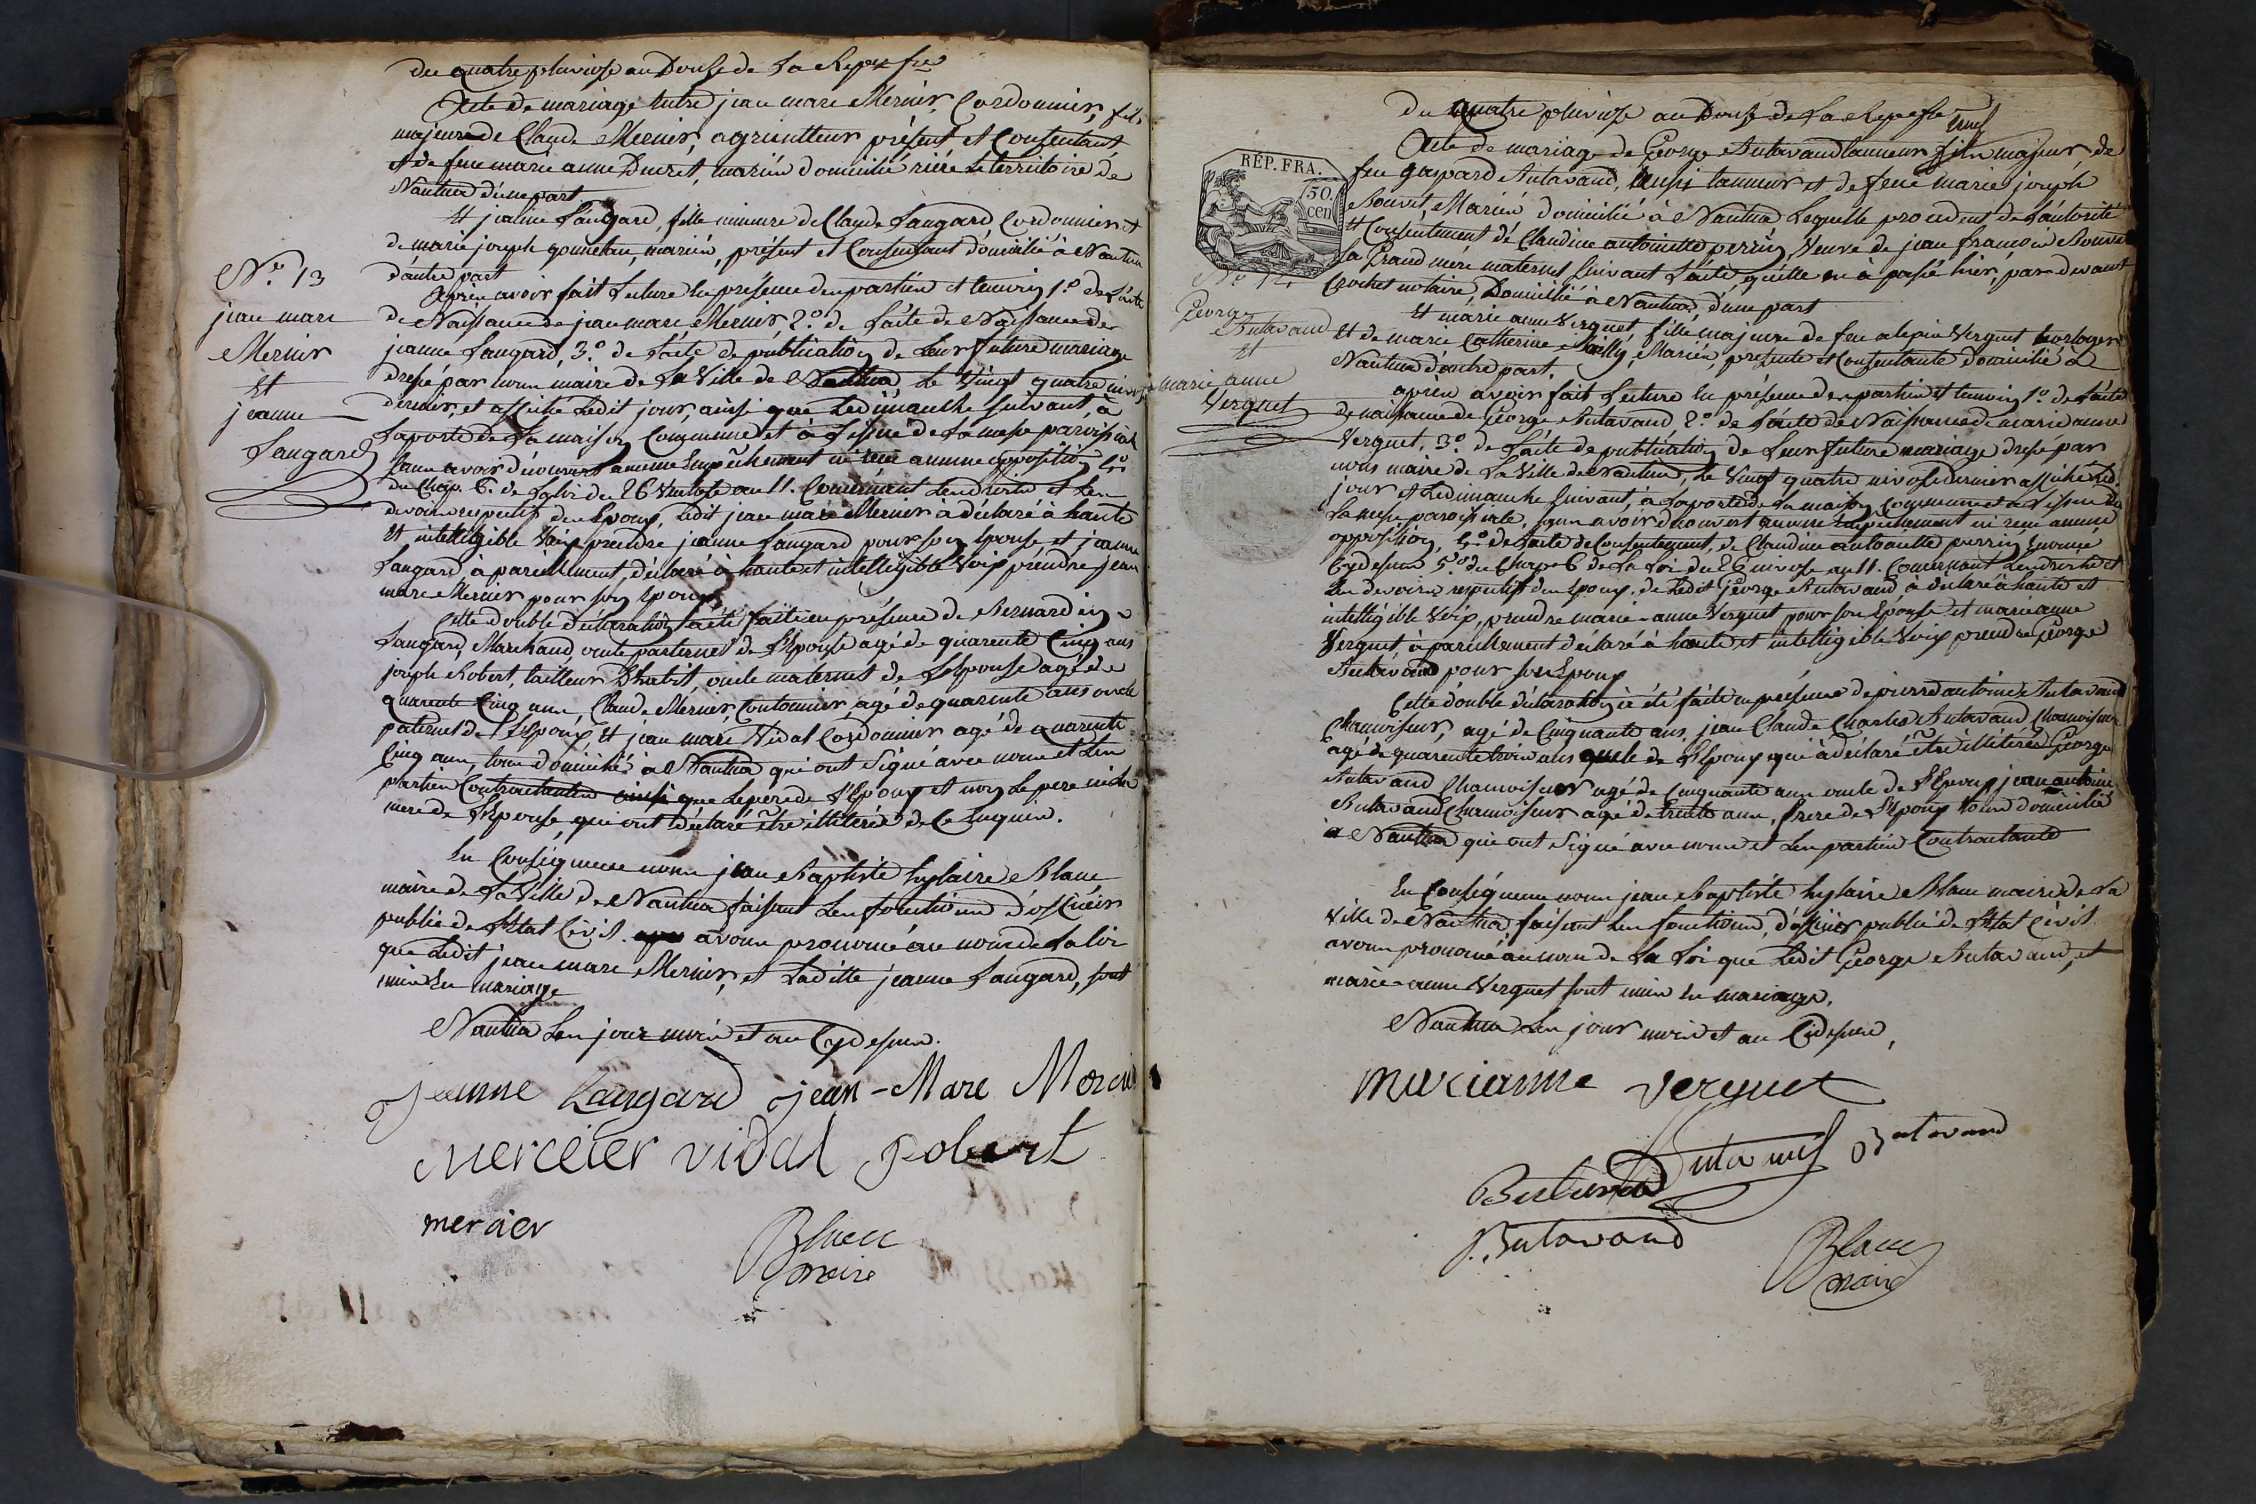 du quatre pluviose an Douse de la Repe fse
Acte de mariage entre jean marc Mercier, Cordonnier, fils
majeur de Claude Mercier, agriculteur présent et Consentant
et de feue marie anne Ducret, mariés domicilié rière le territoire de
Nantua d'une part
Et jeanne Laugard, fille mineure de Claude Laugard Cordonnier et
de marie joseph mariés, présent et Consentant domicilié à Nantua
d'autre part
Après avoir fait lecture en présence des parties et temoins 1.º de l'acte
de Naissance de jean marc Mercier 2.º de l'acte de Naissance de
jeanne Laugard, 3.º de l'acte de publication de leur future mariage
dressé par nous maire de la Ville de Nantua, le Vingt quatre nivose
dernier, et affiché ledit jour, ainsi que le dimanche suivant, à
la porte de la maison Commune et à l'issue de la messe paroissiale
sans avoir découvert aucune Empêchement ni reçu aucune opposition 4.º
du Chap. 6. de la loi du 26 Ventose an 11. Concernant les droits et les
devoirs respectifs des Epoux, ledit jean marc Mercier à déclaré à haute
et intelligible Voix prendre jeanne Laugard pour son Epouse et jeanne
Laugard, à pareillement, déclaré à haute et intelligible Voix prendre jean
marc Mercier pour son Epoux
Cette double déclaration à été faite en présence de Bernardin
Laugard, Marchand oncle paternel de l'Epouse agé de quarente Cinq ans
joseph Robert, tailleur D'habit, oncle maternel de l'Epouse agé de
quarente Cinq ans, Claude Mercier agé de quarente ans oncle
paternel de l'Epoux Et jean marc Vidal Cordonnier agé de quarente
Cinq ans, tous domiciliés à Nantua qui ont signé avec nous et les
parties Contractantes ainsi que le pere de l'Epoux et non le pere ni la
mere de l'Epouse, qui ont déclaré être illitérés de Ce enquis.
En Conséquence nous jean Baptiste hylaire Blanc
maire de la Ville de Nantua faisant les fonctions d'officier
public de l'Etat Civil avons prononcé au nom de la loi
que ledit jean marc Mercier, et ladite jeanne Laugard, sont
unis En mariage
Nantua les jour mois et an Cydessus.
N.º 13
jean marc
Mercier
Et
jeanne
Laugard
Jeanne Laugard jean-Marc Mercier
Mercier vidal Robert
mercier
Blanc
maire
du quatre pluviose an Douse de la Repe fse
Acte de mariage de George Butavand tanneur fils majeur de
feu gaspard Butavand, aussi tanneur et de feue marie joseph
Bouvet, Mariés domicilié à Nantua lequelle procedent de l'autorité
Et Consentement de Claudine antoinette perrin, Veuve de jean francois Bouvet
sa Grand mere maternel suivant l'acte qu'elle en à passé hier, par devant
Crochet notaire, Domicilié à Nantua, d'une part
Et marie anne Verguet, fille majeure de feu alexis Verguet horloger
Et de marie Catherine Mariés, presente et Consentante domicilié à
Nantua d'autre part.
après avoir fait lecture en présence des parties et temoins 1.º de l'acte
de naissance de George Butavand 2.º de l'acte de Naissance de marie anne
Verguet, 3.º de l'acte de publication de leur future mariage dressé par
nous maire de la Ville de Nantua, le Vingt quatre nivose dernier affiché led.
jour et le dimanche suivant, à la porte de la maison Commune et à l'issue de
la messe paroissiale, sans avoir découvert aucune empêchement ni reçu aucune
opposition, 4.º de l'acte de Consentement, de Claudine antoinette perrin Enoncé
Cydessus 5.º du Chap 6 de la loi du 26 nivose an 11. Concernant les droits et
les devoirs respectifs des Epoux, de ledit George Butavand, à déclaré à haute et
intelligible Voix, prendre marie-anne Verguet pour son Epouse et marie anne
Verguet, à pareillement déclaré à haute et intelligible Voix prendre George
Butavand pour son Epoux
Cette double déclaration à été faite en présence de pierre antoine Butavand
Chamoiseur, agé de Cinquante ans, jean Claude Charles Butavand Chamoiseur
agé de quarente trois ans oncle de l'Epoux qui à déclaré être illitéré George
Butavand Chamoiseur agé de Cinquante ans oncle de l'Epoux jean antoine
Butavand Chamoiseur agé de trente ans, frere de l'Epoux tous domicilié
à Nantua qui ont signé avec nous et les parties Contractante
En Conséquence nous jean Baptiste hylaire Blanc maire de la
Ville de Nantua faisant les fonctions, d'officier public de l'Etat Civil
avons prononcé au nom de la loi que ledit George Butavand, et
marie-anne Verguet sont unis En mariage,
Nantua les jour mois et an Cidessus,
RÉP. FRA.
50.
cen.
N.º 14
George
Butavand
Et
marie anne
Verguet
marianne verguet
Butavand Butavand
Butavand
Butavand
Blanc
maire